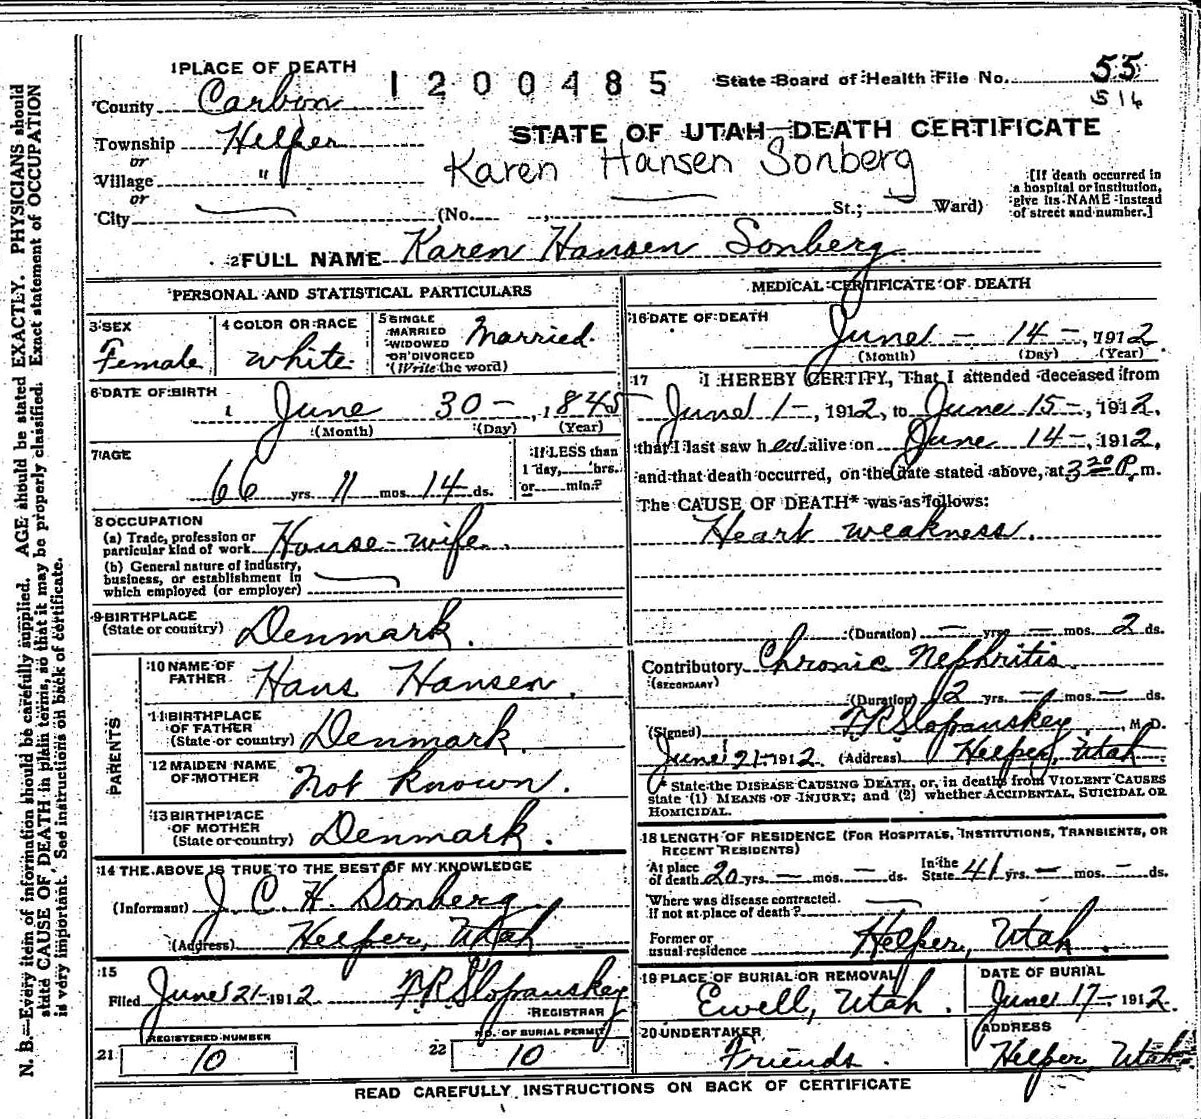 1 PLACE OF DEATH
1200485
State Board of Health File No. 55
516
County Carbon
STATE OF UTAH—DEATH CERTIFICATE
Township Helper
or
Karen Hansen Sonberg
Village "
or
City (No. , St.; Ward)
[If death occurred in
a hospital or institution,
give its NAME instead
of street and number.]
2 FULL NAME Karen Hansen Sonberg
PERSONAL AND STATISTICAL PARTICULARS
3 SEX
Female
4 COLOR OR RACE
White
5 SINGLE
MARRIED
WIDOWED
OR DIVORCED
(Write the word)
Married.
6 DATE OF BIRTH
June 30 - , 1845
(Month) (Day) (Year)
7 AGE
66 yrs. 11 mos. 14 ds.
If LESS than
1 day, hrs.
or min.?
8 OCCUPATION
(a) Trade, profession or
particular kind of work House-wife.
(b) General nature of industry,
business, or establishment in
which employed (or employer)
9 BIRTHPLACE
(State or country) Denmark.
PARENTS
10 NAME OF
FATHER Hans Hansen.
11 BIRTHPLACE
OF FATHER
(State or country) Denmark.
12 MAIDEN NAME
OF MOTHER Not known.
13 BIRTHPLACE
OF MOTHER
(State or country) Denmark.
14 THE ABOVE IS TRUE TO THE BEST OF MY KNOWLEDGE
(Informant) J. C. H. Sonberg
(Address) Helper, Utah
15
Filed June 21 - 1912 F R Slopanskey
REGISTRAR
REGISTERED NUMBER
21 10
NO. OF BURIAL PERMIT
22 10
MEDICAL CERTIFICATE OF DEATH
16 DATE OF DEATH
June - 14 - , 1912
(Month) (Day) (Year)
17 I HEREBY CERTIFY, That I attended deceased from
June 1 - , 1912, to June 15 - , 1912,
that I last saw her alive on June 14 - , 1912,
and that death occurred, on the date stated above, at 3 20 P. m.
The CAUSE OF DEATH* was as follows:
Heart weakness.
(Duration) — yrs. — mos. 2 ds.
Contributory Chronic Nephritis.
(SECONDARY)
(Duration) 2 yrs. — mos. — ds.
(Signed) F R Slopanskey, M. D.
June 21 - 1912. (Address) Helper, Utah
* State the DISEASE CAUSING DEATH, or, in deaths from VIOLENT CAUSES
state (1) MEANS OF INJURY; and (2) whether ACCIDENTAL, SUICIDAL OR
HOMICIDAL.
18 LENGTH OF RESIDENCE (FOR HOSPITALS, INSTITUTIONS, TRANSIENTS, OR
RECENT RESIDENTS)
At place
of death 20 yrs. — mos. — ds. In the
State 41 yrs. — mos. — ds.
Where was disease contracted.
If not at place of death?
Former or
usual residence Helper, Utah.
19 PLACE OF BURIAL OR REMOVAL
Ewell, Utah.
DATE OF BURIAL
June 17 - 1912.
20 UNDERTAKER
Friends.
ADDRESS
Helper, Utah.
READ CAREFULLY INSTRUCTIONS ON BACK OF CERTIFICATE
N. B.—Every item of information should be carefully supplied. AGE should be stated EXACTLY. PHYSICIANS should
state CAUSE OF DEATH in plain terms, so that it may be properly classified. Exact statement of OCCUPATION
is very important. See instructions on back of certificate.